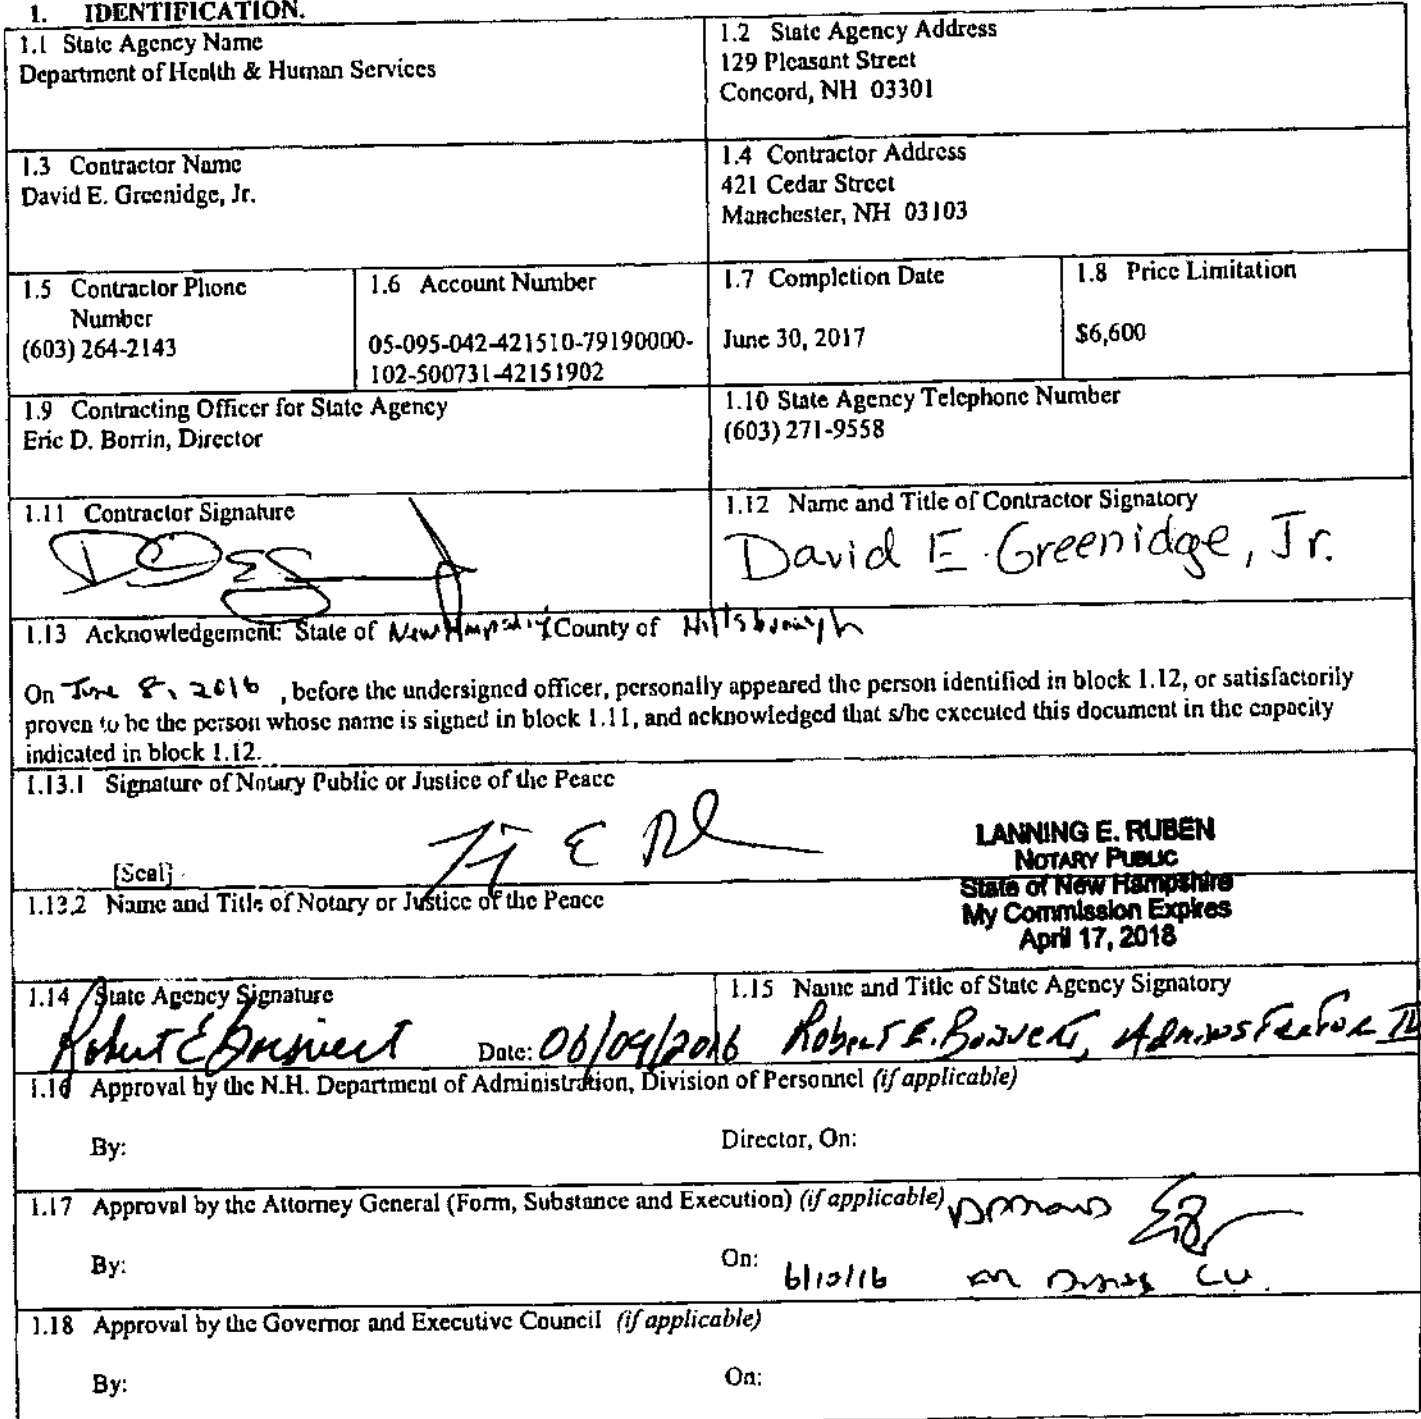 1. IDENTIFICATION.
1.1 State Agency Name
Department of Health & Human Services
1.2 State Agency Address
129 Pleasant Street
Concord, NH 03301
1.3 Contractor Name
David E. Greenidge, Jr.
1.4 Contractor Address
421 Cedar Street
Manchester, NH 03103
1.5 Contractor Phone
Number
(603) 264-2143
1.6 Account Number
05-095-042-421510-79190000-
102-500731-42151902
1.7 Completion Date
June 30, 2017
1.8 Price Limitation
$6,600
1.9 Contracting Officer for State Agency
Eric D. Borrin, Director
1.10 State Agency Telephone Number
(603) 271-9558
1.11 Contractor Signature
1.12 Name and Title of Contractor Signatory
David E. Greenidge, Jr.
1.13 Acknowledgement: State of New Hampshire County of Hillsborough
On June 8, 2016 , before the undersigned officer, personally appeared the person identified in block 1.12, or satisfactorily
proven to be the person whose name is signed in block 1.11, and acknowledged that s/he executed this document in the capacity
indicated in block 1.12.
1.13.1 Signature of Notary Public or Justice of the Peace
[Seal]
LANNING E. RUBEN
NOTARY PUBLIC
State of New Hampshire
My Commission Expires
April 17, 2018
1.13.2 Name and Title of Notary or Justice of the Peace
1.14 State Agency Signature
Date: 06/09/2016
1.15 Name and Title of State Agency Signatory
Robert E. Boisvert, Administrator IV
1.16 Approval by the N.H. Department of Administration, Division of Personnel (if applicable)
By:
Director, On:
1.17 Approval by the Attorney General (Form, Substance and Execution) (if applicable)
By:
On:
1.18 Approval by the Governor and Executive Council (if applicable)
By:
On: